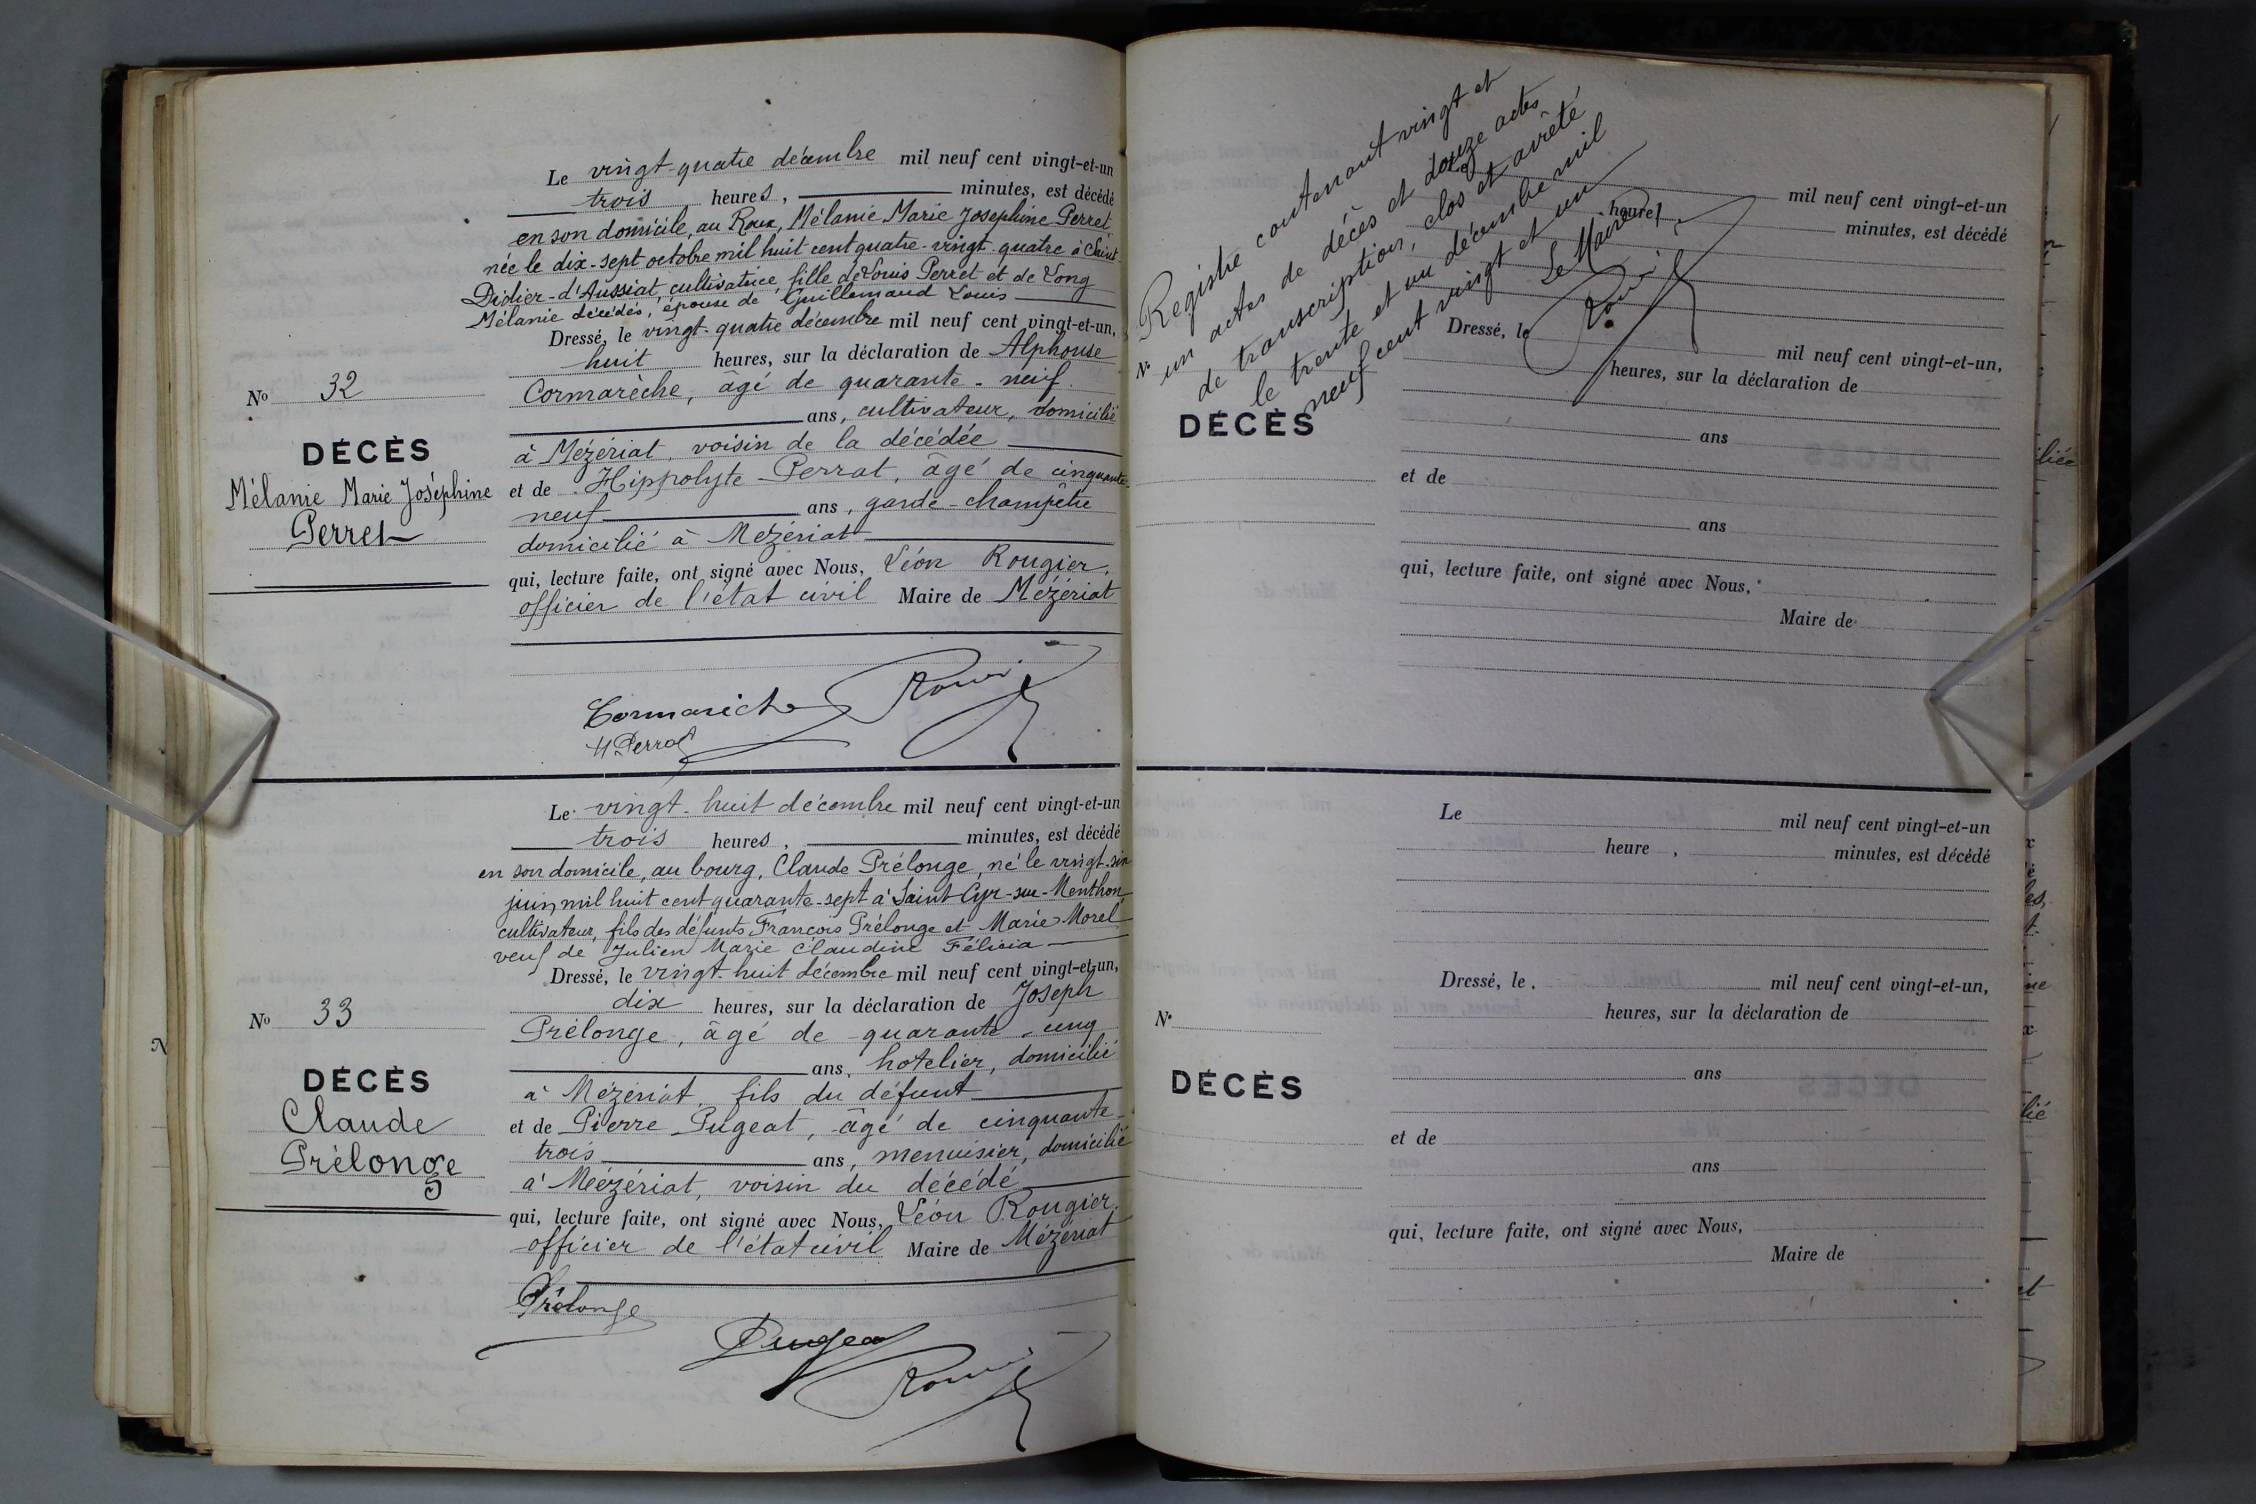 Le vingt-quatre décembre mil neuf cent vingt-et-un
trois heures, minutes, est décédé
en son domicile, au Roux, Mélanie Marie Josephine Perret
née le dix-sept octobre mil huit cent quatre-vingt-quatre à Saint
Didier-d'Aussiat, cultivatrice, fille de Louis Perret et de Long
Mélanie décédés, épouse de Guillemaud Louis
Dressé, le vingt-quatre décembre mil neuf cent vingt-et-un,
huit heures, sur la déclaration de Alphonse
Cormarèche, âgé de quarante-neuf
ans, cultivateur, domicilié
à Mézériat, voisin de la décédée
et de Hippolyte Perrat, âgé de cinquante-
neuf ans, garde-champêtre
domicilié à Mézériat
qui, lecture faite, ont signé avec Nous, Léon Rougier,
officier de l'état civil Maire de Mézériat
No 32
DÉCÈS
Mélanie Marie Joséphine
Perret
Cormarèche
H Perrat
Le vingt-huit décembre mil neuf cent vingt-et-un
trois heures, minutes, est décédé
en son domicile, au bourg, Claude Prélonge, né le vingt-six
juin mil huit cent quarante-sept à Saint Cyr-sur-Menthon,
cultivateur, fils des défunts François Prélonge et Marie Morel
veuf de Julien Marie Claudine Félicia
Dressé, le vingt-huit décembre mil neuf cent vingt-et-un,
dix heures, sur la déclaration de Joseph
Prélonge, âgé de quarante-cinq
ans, hotelier, domicilié
à Mézériat, fils du défunt
et de Pierre Pugeat, âgé de cinquante-
trois ans, menuisier, domicilié
à Méézériat, voisin du décédé
qui, lecture faite, ont signé avec Nous, Léon Rougier,
officier de l'état civil Maire de Mézériat
No 33
DÉCÈS
Claude
Prélonge
Prélonge
Pugeat
Registre contenant vingt et
un actes de décès et douze actes
de transcription, clos et arrêté
le trente et un décembre mil
neuf cent vingt et un
Le Maire,
mil neuf cent vingt-et-un
heure,
minutes, est décédé
Dressé, le
mil neuf cent vingt-et-un,
heures, sur la déclaration de
No
DÉCÈS
ans
et de
ans
qui, lecture faite, ont signé avec Nous,
Maire de
Le mil neuf cent vingt-et-un
heure , minutes, est décédé
Dressé, le mil neuf cent vingt-et-un,
heures, sur la déclaration de
No
DÉCÈS
ans
et de
ans
qui, lecture faite, ont signé avec Nous,
Maire de